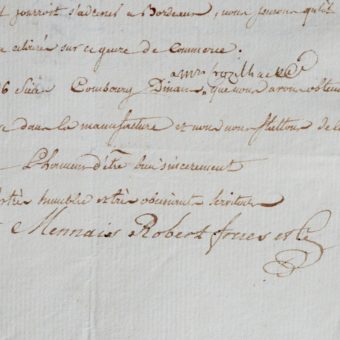 pourroit s'adresser a Bordeaux, nous
sur ce genre de Commerce.
Combourg Dinan, que nous avons
dans la manufacture et nous nous flattons de
L'honneur d'être bien sincerement
très humble et très obeissant serviteur
Mennais Robert freres et Cie